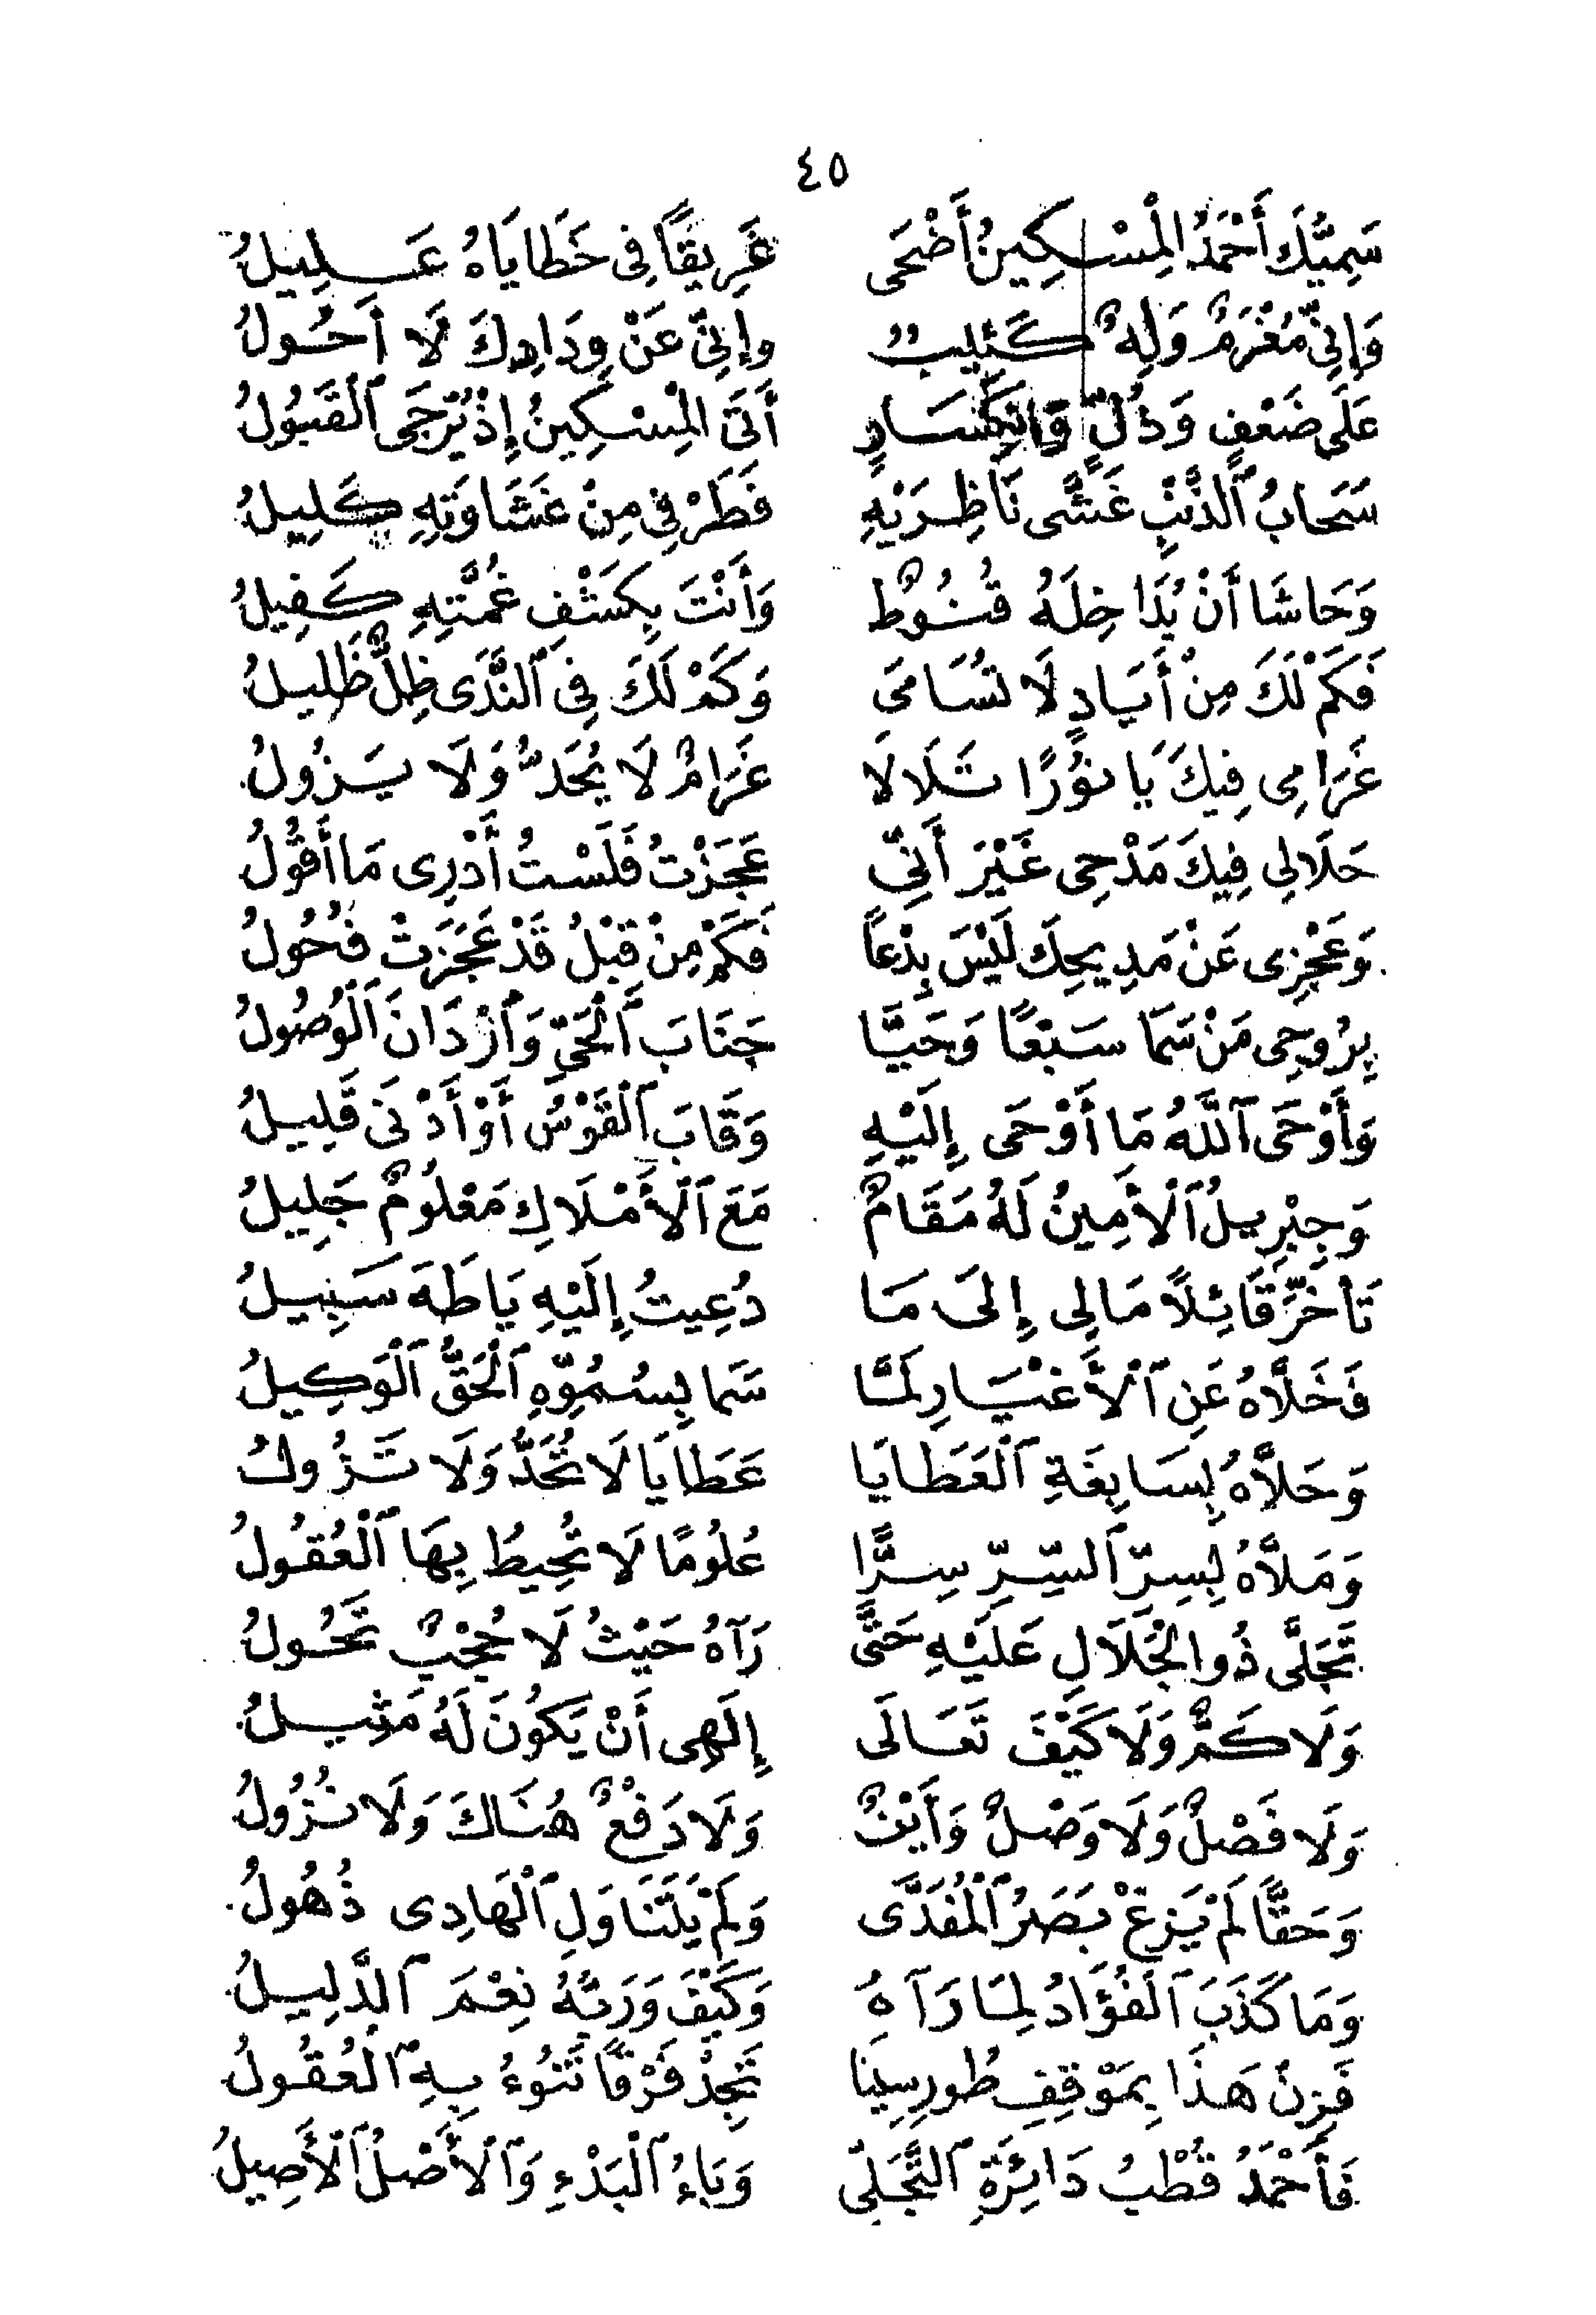 ٤٥
سَمِيُّكَ أَحْمَدُ الْمِسْكِينُ أَضْحَى غَرِيقًا فِى خَطَايَاهُ عَلِيلُ
وَإِنِّى مُغْرَمٌ وَلِهٌ كَئِيبٌ وإِنِّى عَنْ وِدَادِكَ لَا أَحُولُ
عَلَى ضَعْفٍ وَذُلٍّ وَانْكِسَارٍ أَتَى الْمِسْكِينُ إِذْ يُرْجَى ٱلْقَبُولُ
سَحَابُ ٱلذَّنْبِ غَشَّى نَاظِرَيْهِ فَطَرْفِى مِنْ غَشَاوَتِهِ كَلِيلُ
وَحَاشَا أَنْ يُدَاخِلَهُ قُنُوطٌ وَأَنْتَ بِكَشْفِ غُمَّتِهِ كَفِيلُ
فَكَمْ لَكَ مِنْ أَيَادٍ لَا تُسَامَى وَكَمْ لَكَ فِى ٱلنَّدَى ظِلٌّ ظَلِيلُ
غَرَامِى فِيكَ يَا نُورًا تَلَالَا غَرَامٌ لَا يُحَدُّ وَلَا يَزُولُ
حَلَالِى فِيكَ مَدْحِى غَيْرَ أَنِّى عَجَزْتُ فَلَسْتُ أَدْرِى مَا أَقُولُ
وَعَجْزِى عَنْ مَدِيحِكَ لَيْسَ بِدْعاً فَكَمْ مِنْ قَبْلُ قَدْ عَجَزَتْ فُحُولُ
بِرُوحِى مَنْ سَمَا سَبْعًا وَحَيَّا جَنَابَ ٱلْحَىِّ وَٱزْدَانَ ٱلْوُصُولُ
وَأَوْحَى ٱللَّهُ مَا أَوْحَى إِلَيْهِ وَقَابَ ٱلْقَوْسُ أَوْ أَدْنَى قَلِيلُ
وَجِبْرِيلُ ٱلْأَمِينُ لَهُ مَقَامٌ مَعَ ٱلْأَمْلَاكِ مَعْلُومٌ جَلِيلُ
تَأَخَّرَ قَائِلاً مَالِى إِلَى مَا دُعِيتُ إِلَيْهِ يَا طَهَ سَبِيلُ
فَخَلَّاهُ عَنِ ٱلْأَغْيَارِ لَمَّا سَمَا بِسُمُوِّهِ ٱلْحَقُّ ٱلْوَكِيلُ
وَحَلَّاهُ بِسَابِغَةِ ٱلْعَطَايَا عَطَايَا لَا تُحَدُّ وَلَا تَزُولُ
وَمَلَّاهُ بِسِرِّ ٱلسِّرِّ سِرًّا عُلُومًا لَا تُحِيطُ بِهَا ٱلْعُقُولُ
تَجَلَّى ذُو الْجَلَالِ عَلَيْهِ حَتَّى رَآهُ حَيْثُ لَا حُجْبٌ تَحُولُ
وَلَا كَمٌّ وَلَا كَيْفَ تَعَالَى إِلَهِى أَنْ يَكُونَ لَهُ مَثِيلُ
وَلَا فَصْلٌ وَلَا وَصْلٌ وَأَيْنٌ وَلَا دَفْعٌ هُنَاكَ وَلَا نُزُولُ
وَحَقًّا لَمْ يَزِغْ بَصَرُ ٱلْمُفَدَّى وَلَمْ يَتَنَاوَلِ ٱلْهَادِى ذُهُولُ
وَمَا كَذَبَ ٱلْفُؤَادُ لِمَا رَآهُ وَكَيْفَ وَرَبُّهُ نِعْمَ ٱلدَّلِيلُ
فَزِنْ هَذَا بِمَوْقِفِ طُورِ سِينَا تَجِدْ فَرْقًا تَنُوءُ بِهِ ٱلْعُقُولُ
فَأَحْمَدُ قُطْبُ دَائِرَةِ ٱلتَّجَلِّى وَبَاءُ ٱلْبَدْءِ وَٱلْأَصْلُ ٱلْأَصِيلُ